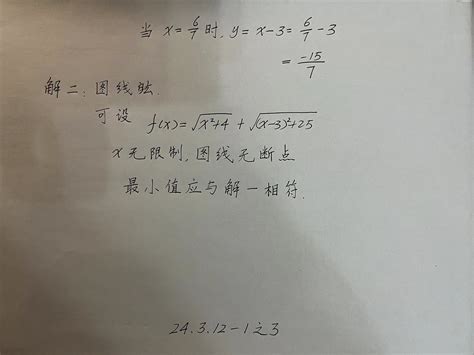 当 x = 6/7 时, y = x-3 = 6/7 - 3
= -15/7
解二: 图线法.
可设 f(x) = √(x²+4) + √((x-3)²+25)
x 无限制, 图线无断点
最小值应与解一相符.
24.3.12-1之3